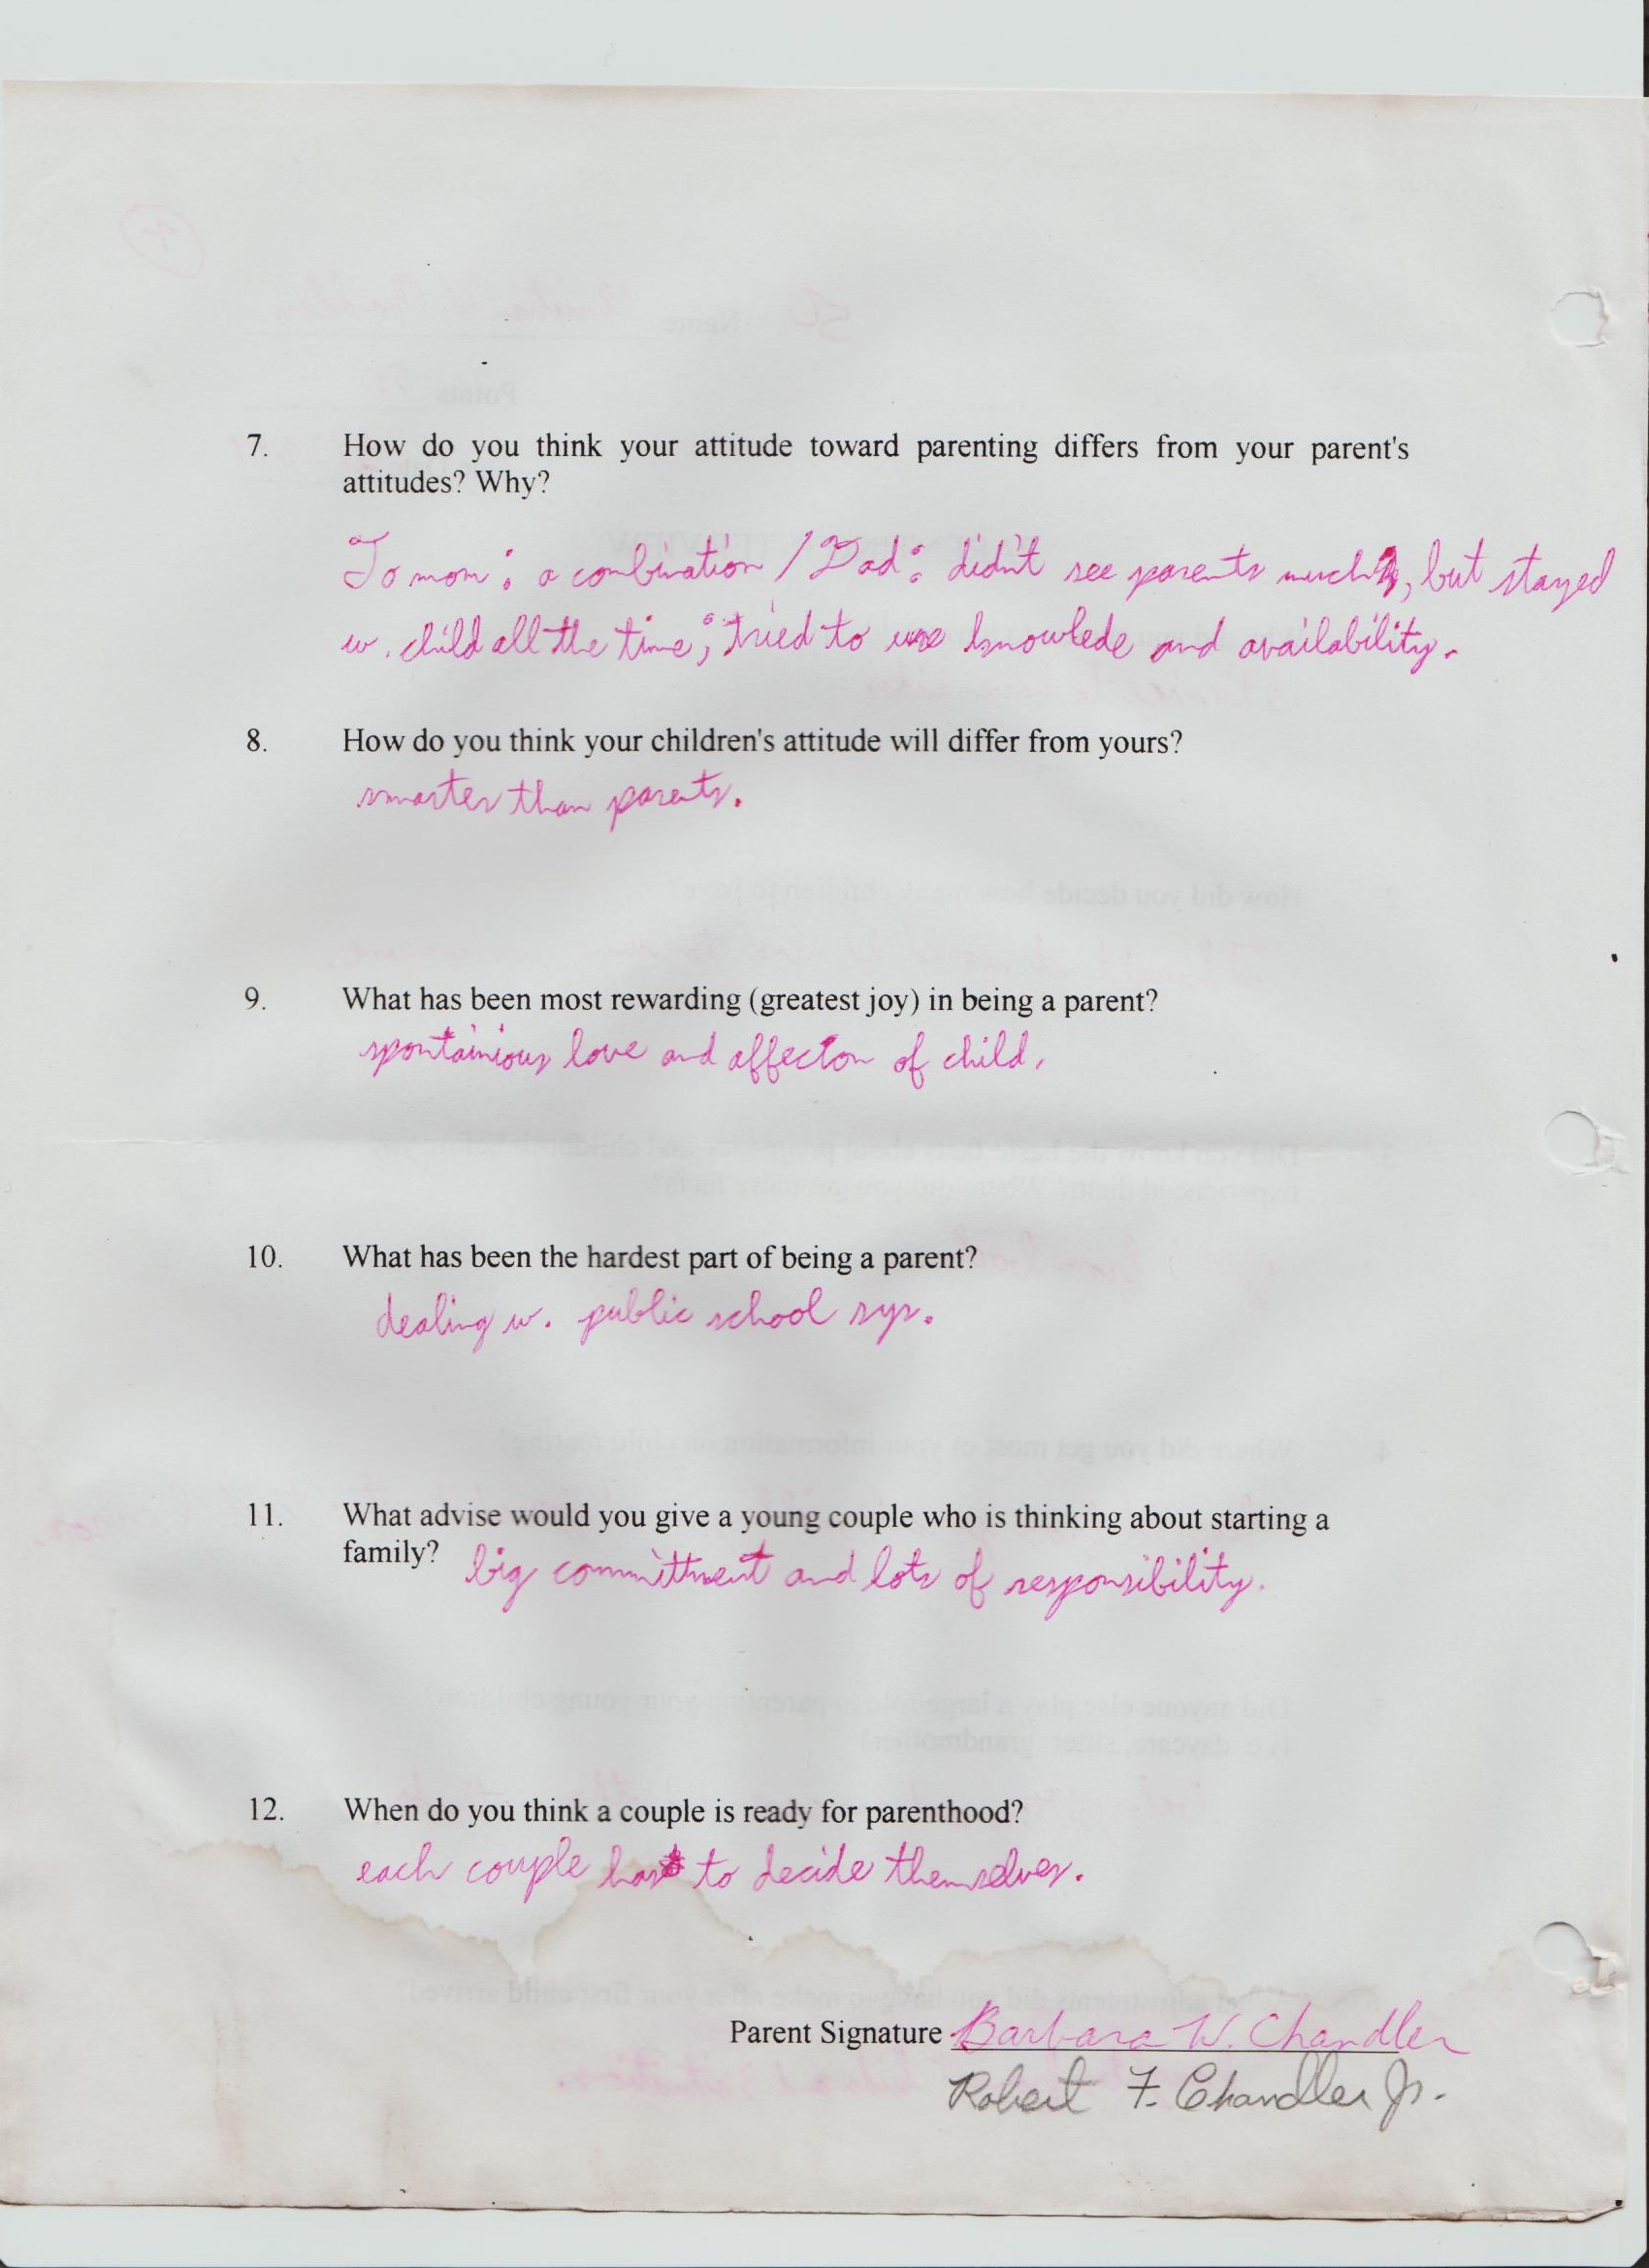 7. How do you think your attitude toward parenting differs from your parent's
attitudes? Why?
To mom: a combination / Dad: didn't see parents much, but stayed
w. child all the time; tried to use knowlede and availability.
8. How do you think your children's attitude will differ from yours?
smarter than parents.
9. What has been most rewarding (greatest joy) in being a parent?
spontainious love and affecton of child.
10. What has been the hardest part of being a parent?
dealing w. public school sys.
11. What advise would you give a young couple who is thinking about starting a
family? big committment and lots of responsibility.
12. When do you think a couple is ready for parenthood?
each couple has to decide themselves.
Parent Signature Barbara W. Chandler
Robert F. Chandler Jr.